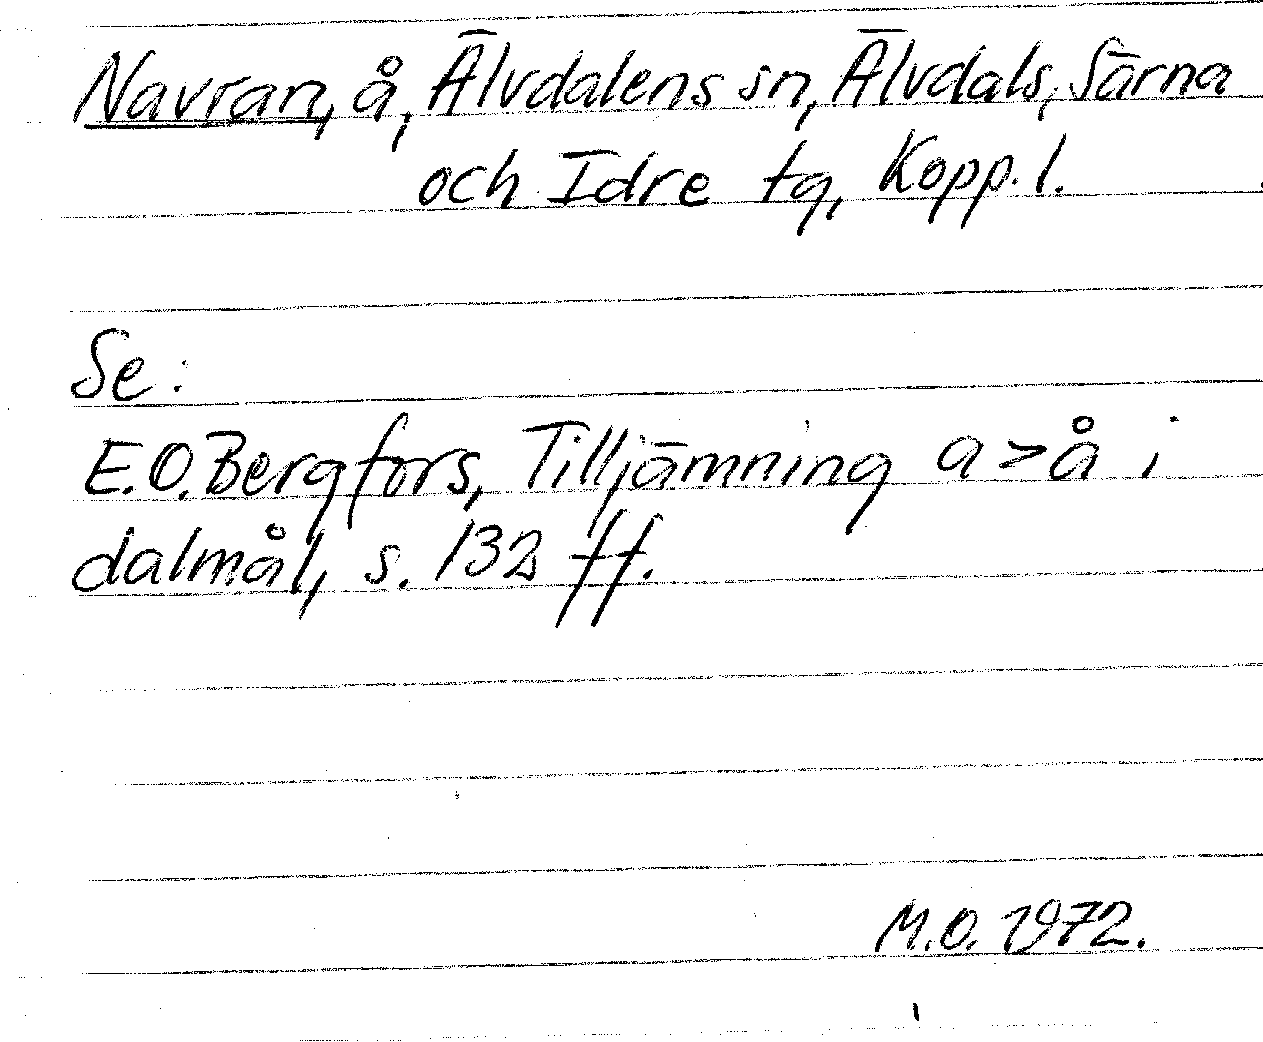 Navran, å, Älvdalens sn, Älvdals, Särna
och Idre tg, Kopp. l.
Se:
E.O. Bergfors, Tilljämning a > å i
dalmål, s. 132 ff.
M.O. 1972.